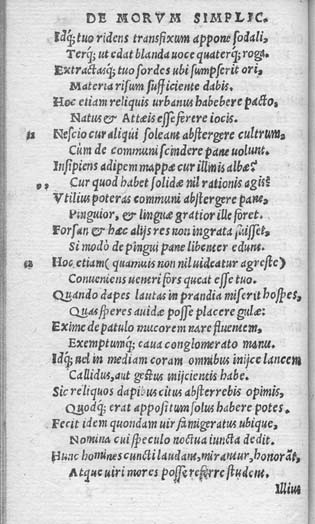 DE MORVM SIMPLIC.
Idq; tuo ridens transfixum appone sodali,
Terq; ut edat blanda uoce quaterq; roga.
Extractasq; tuo sordes ubi sumpserit ori,
Materia risum sufficiente dabis.
Hoc etiam reliquis urbanus habebere pacto,
Natus & Attæis esse ferere iocis.
12 Nescio cur aliqui soleant abstergere cultrum,
Cùm de communi scindere pane uolunt.
Insipiens adipem mappæ cur illinis albæ?
,, Cur quod habet solidæ nil rationis agis?
Vtilius poteras communi abstergere pane,
Pinguior, & linguæ gratior ille foret.
Forsan & hæc alijs res non ingrata fuisset,
Si modò de pingui pane libenter edunt.
Hoc etiam (quamuis non nil uideatur agreste)
Conueniens ueneri fors queat esse tuo.
Quando dapes lautas in prandia miserit hospes,
Quas speres auidæ posse placere gulæ:
Exime de patulo mucorem nare fluentem,
Exemptumq; caua conglomerato manu.
Idq; uel in mediam coram omnibus inijce lancem
Callidus, aut gestus inijcientis habe.
Sic reliquos dapibus citus absterrebis opimis,
Quodq; erat appositum solus habere potes.
Fecit idem quondam uir famigeratus ubique,
Nomina cui speculo noctua iuncta dedit.
Hunc homines cuncti laudant, mirantur, honorãt,
Atque uiri mores posse referre student.
Illius